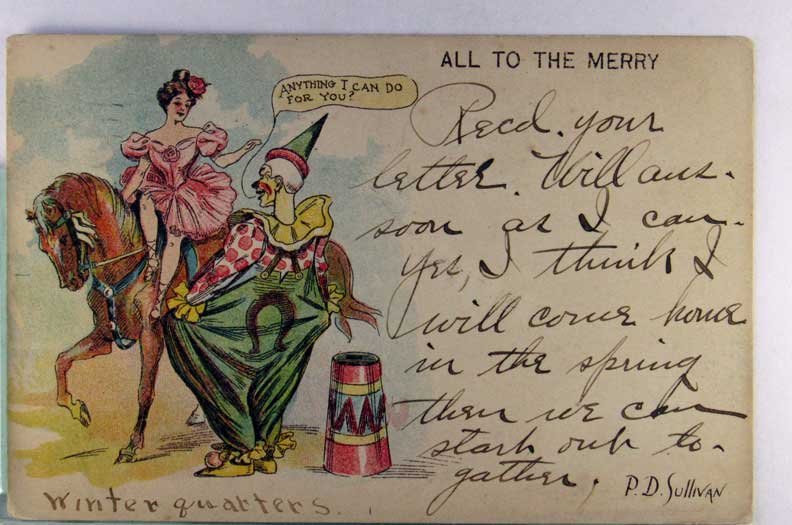 ALL TO THE MERRY
ANYTHING I CAN DO
FOR YOU?
Recd. your
letter. Will ans.
soon as I can.
Yes, I think I
will come home
in the spring
then we can
start out to-
gather.
P.D. SULLIVAN
Winter quarters.